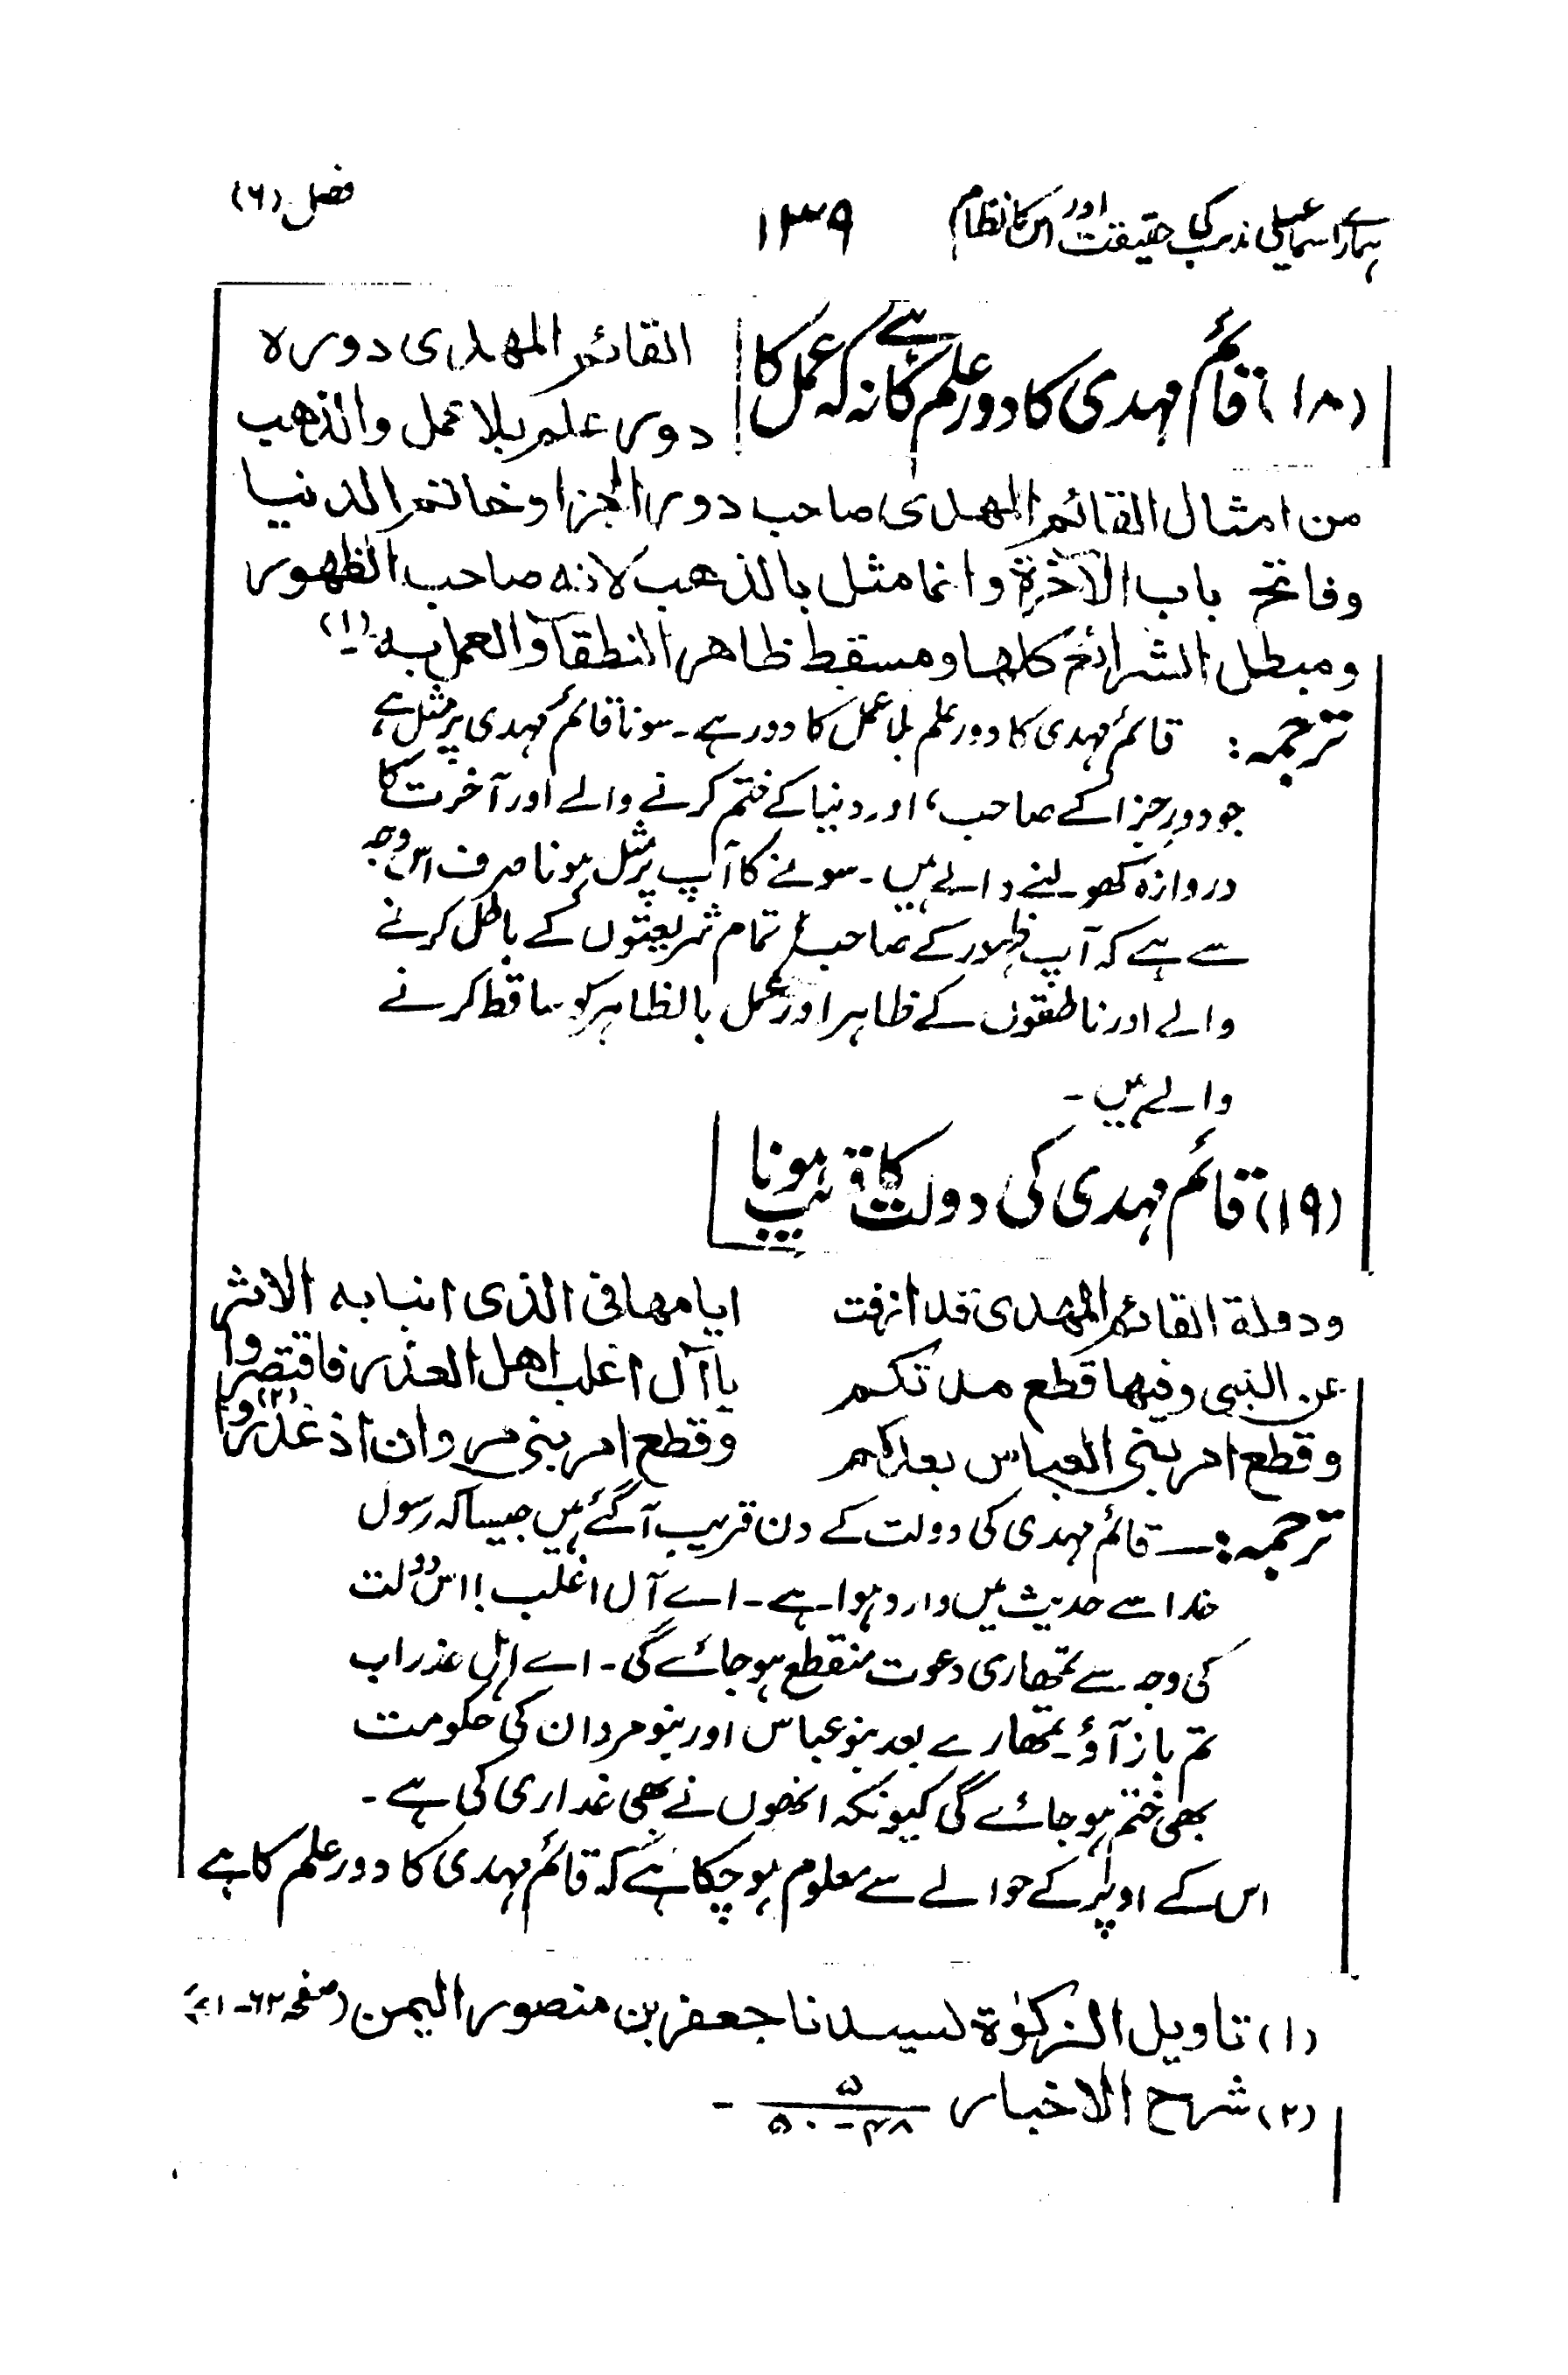 ہمارے اسماعیلی مذہب کی حقیقت اور اس کا نظام ۱۳۹ فصل (۶)
(۱۸) قائم مہدی کا دور علم کا ہے نہ کہ عمل کا
القائم المهدی دوره
دور علم بلا عمل والذهب
من امثال القائم المهدی صاحب دور الجزا وخاتم الدنیا
وفاتح باب الآخرة وانما مثل بالذهب لانه صاحب الظهور
ومبطل الشرائع کلها ومسقط ظاهر النطقآء والعمل به (۱)
ترجمہ: قائم مہدی کا دور علم بلا عمل کا دور ہے۔ سونا قائم مہدی پر مثل ہے
جو دورِ جزا کے صاحب، اور دنیا کے ختم کرنے والے اور آخرت کا
دروازہ کھولنے والے ہیں۔ سونے کا آپ پر مثل ہونا صرف اس وجہ
سے ہے کہ آپ ظہور کے صاحب، تمام شریعتوں کے باطل کرنے
والے اور ناطقوں کے ظاہر اور عمل بالظاہر کو ساقط کرنے
والے ہیں۔
(۱۹) قائم مہدی کی دولت کا قریب ہونا
ودولة القائم المهدی قد ازفت ایامها فی الذی انبا به الاثر
عن النبی وفیها قطع مدتکم یا آل اغلب اهل العذر فاقتصروا
وقطع امر بنی العباس بعدکم وقطع امر بنی مروان اذ غدروا (۲)
ترجمہ:— قائم مہدی کی دولت کے دن قریب آگئے ہیں جیسا کہ رسول
خدا سے حدیث میں وارد ہوا ہے۔ اے آل اغلب! اس دولت
کی وجہ سے تمھاری دعوت منقطع ہو جائے گی۔ اے اہل عذر اب
تم باز آؤ۔ تمھارے بعد بنو عباس اور بنو مردان کی حکومت
بھی ختم ہو جائے گی کیونکہ انھوں نے بھی غداری کی ہے۔
اس کے اوپر کے حوالے سے معلوم ہو چکا ہے کہ قائم مہدی کا دور علم کا ہے
(۱) تاویل الزکوٰة لسیدنا جعفر بن منصور الیمن (صفحہ ۶۲-
(۲) شرح الاخبار ۵ / ۴۸-۵۰ -